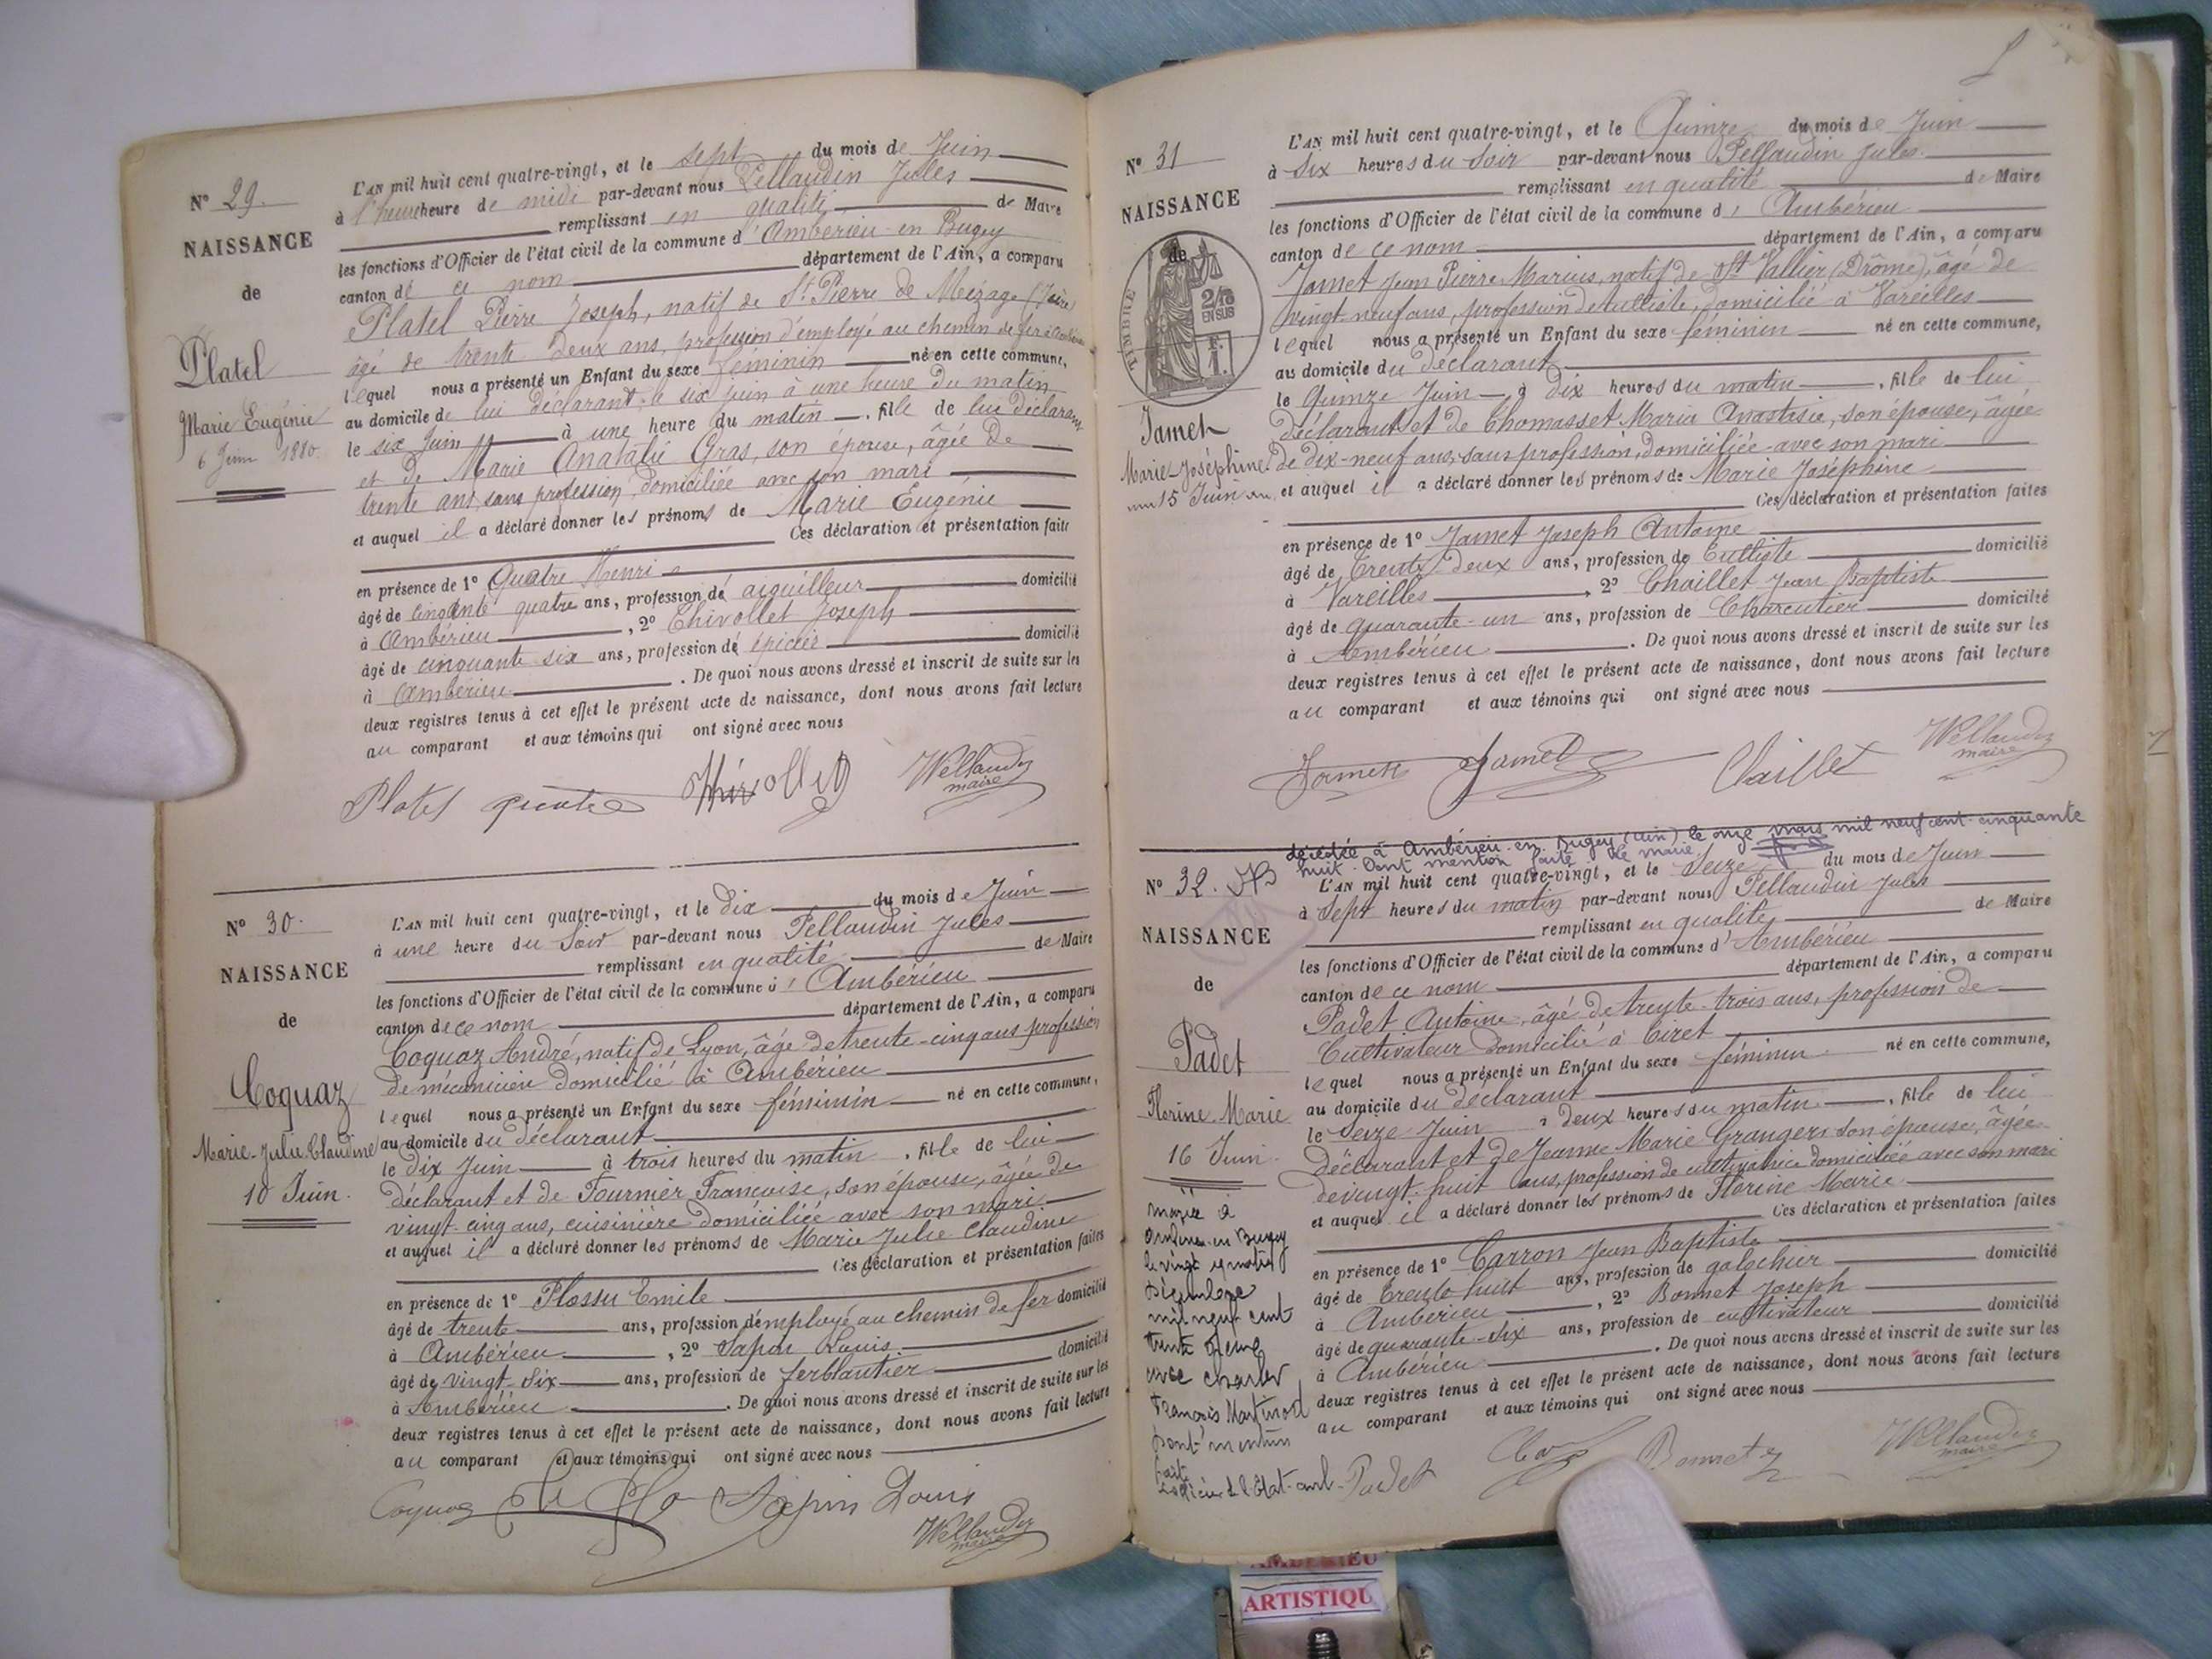 N° 29.
NAISSANCE
de
Platel
Marie Eugénie
6 Juin 1880.
L'AN mil huit cent quatre-vingt, et le sept du mois de Juin
à l'heure heure de midi par-devant nous Pellaudin Jules
remplissant en qualité de Maire
les fonctions d'Officier de l'état civil de la commune d'Ambérieu en Bugey
canton de ce nom département de l'Ain, a comparu
Platel Pierre Joseph, natif de St Pierre de Mézage (Isère)
âgé de trente deux ans, profession d'employé au chemin de fer
lequel nous a présenté un Enfant du sexe féminin né en cette commune,
au domicile de lui déclarant, le six juin à une heure du matin
le six Juin à une heure du matin, fille de lui déclarant
et de Marie Anatalie Gras, son épouse, âgée de
trente ans, sans profession, domiciliée avec son mari
et auquel il a déclaré donner les prénoms de Marie Eugénie
Ces déclaration et présentation faites
en présence de 1° Quatre Henri
âgé de cinquante quatre ans, profession de aiguilleur domicilié
à Ambérieu, 2° Thivollet Joseph
âgé de cinquante six ans, profession de épicier domicilié
à Ambérieu. De quoi nous avons dressé et inscrit de suite sur les
deux registres tenus à cet effet le présent acte de naissance, dont nous avons fait lecture
au comparant et aux témoins qui ont signé avec nous
Platel quatre Thivollet Pellaudin
maire
N° 30.
NAISSANCE
de
Coquaz
Marie-Julie Claudine
10 Juin.
L'AN mil huit cent quatre-vingt, et le dix du mois de Juin
à une heure du soir par-devant nous Pellaudin Jules
remplissant en qualité de Maire
les fonctions d'Officier de l'état civil de la commune d'Ambérieu
canton de ce nom département de l'Ain, a comparu
Coquaz André, natif de Lyon, âgé de trente-cinq ans, profession
de mécanicien domicilié à Ambérieu
lequel nous a présenté un Enfant du sexe féminin né en cette commune,
au domicile du déclarant
le dix Juin à trois heures du matin, fille de lui
déclarant et de Fournier Françoise, son épouse, âgée de
vingt-cinq ans, cuisinière domiciliée avec son mari
et auquel il a déclaré donner les prénoms de Marie Julie Claudine
Ces déclaration et présentation faites
en présence de 1° Plossu Emile
âgé de trente ans, profession d'employé au chemin de fer domicilié
à Ambérieu, 2° Sapin Louis
âgé de vingt-six ans, profession de ferblantier domicilié
à Ambérieu. De quoi nous avons dressé et inscrit de suite sur les
deux registres tenus à cet effet le présent acte de naissance, dont nous avons fait lecture
au comparant et aux témoins qui ont signé avec nous
Coquaz Sapin Louis
Pellaudin
maire
N° 31
NAISSANCE
de
TIMBRE
2/10
EN SUS
Jamet
Marie-Joséphine
15 Juin
L'AN mil huit cent quatre-vingt, et le Quinze du mois de Juin
à Six heures du soir par-devant nous Pellaudin Jules
remplissant en qualité de Maire
les fonctions d'Officier de l'état civil de la commune d'Ambérieu
canton de ce nom département de l'Ain, a comparu
Jamet Jean Pierre Marius, natif de St Vallier (Drôme), âgé de
vingt-neuf ans, profession de tulliste, domicilié à Vareilles
lequel nous a présenté un Enfant du sexe féminin né en cette commune,
au domicile du déclarant
le Quinze Juin à dix heures du matin, fille de lui
déclarant et de Thomasset Marie Anastasie, son épouse, âgée
de dix-neuf ans, sans profession, domiciliée avec son mari
et auquel il a déclaré donner les prénoms de Marie Joséphine
Ces déclaration et présentation faites
en présence de 1° Jamet Joseph Antoine
âgé de Trente deux ans, profession de Tulliste domicilié
à Vareilles, 2° Chaillet Jean Baptiste
âgé de quarante-un ans, profession de Charcutier domicilié
à Ambérieu. De quoi nous avons dressé et inscrit de suite sur les
deux registres tenus à cet effet le présent acte de naissance, dont nous avons fait lecture
au comparant et aux témoins qui ont signé avec nous
Jamet Jamet Chaillet Pellaudin
maire
décédée à Ambérieu-en-Bugey (Ain) le onze mars mil neuf cent cinquante
huit. Dont mention faite. Le maire
N° 32.
NAISSANCE
de
Padet
Florine Marie
16 Juin.
mariée à
Ambérieu en Bugey
le vingt quatre
Décembre
mil neuf cent
trente
avec Charles
François Martinod
Dont mention
faite
L'officier de l'état-civil
L'AN mil huit cent quatre-vingt, et le Seize du mois de Juin
à Sept heures du matin par-devant nous Pellaudin Jules
remplissant en qualité de Maire
les fonctions d'Officier de l'état civil de la commune d'Ambérieu
canton de ce nom département de l'Ain, a comparu
Padet Antoine, âgé de trente-trois ans, profession de
Cultivateur domicilié à Tiret
lequel nous a présenté un Enfant du sexe féminin né en cette commune,
au domicile du déclarant
le Seize Juin à deux heures du matin, fille de lui
déclarant et de Jeanne Marie Granger son épouse, âgée
de vingt-huit ans, profession de cultivatrice domiciliée avec son mari
et auquel il a déclaré donner les prénoms de Florine Marie
Ces déclaration et présentation faites
en présence de 1° Carron Jean Baptiste
âgé de Trente huit ans, profession de galochier domicilié
à Ambérieu, 2° Bonnet Joseph
âgé de quarante-six ans, profession de cultivateur domicilié
à Ambérieu. De quoi nous avons dressé et inscrit de suite sur les
deux registres tenus à cet effet le présent acte de naissance, dont nous avons fait lecture
au comparant et aux témoins qui ont signé avec nous
Padet Bonnet Pellaudin
maire
AMBERIEU
ARTISTIQU